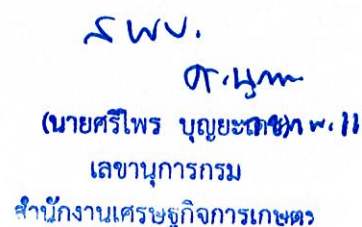 สพบ.
(นายศรีไพร บุญยะเดช)
เลขานุการกรม
สำนักงานเศรษฐกิจการเกษตร